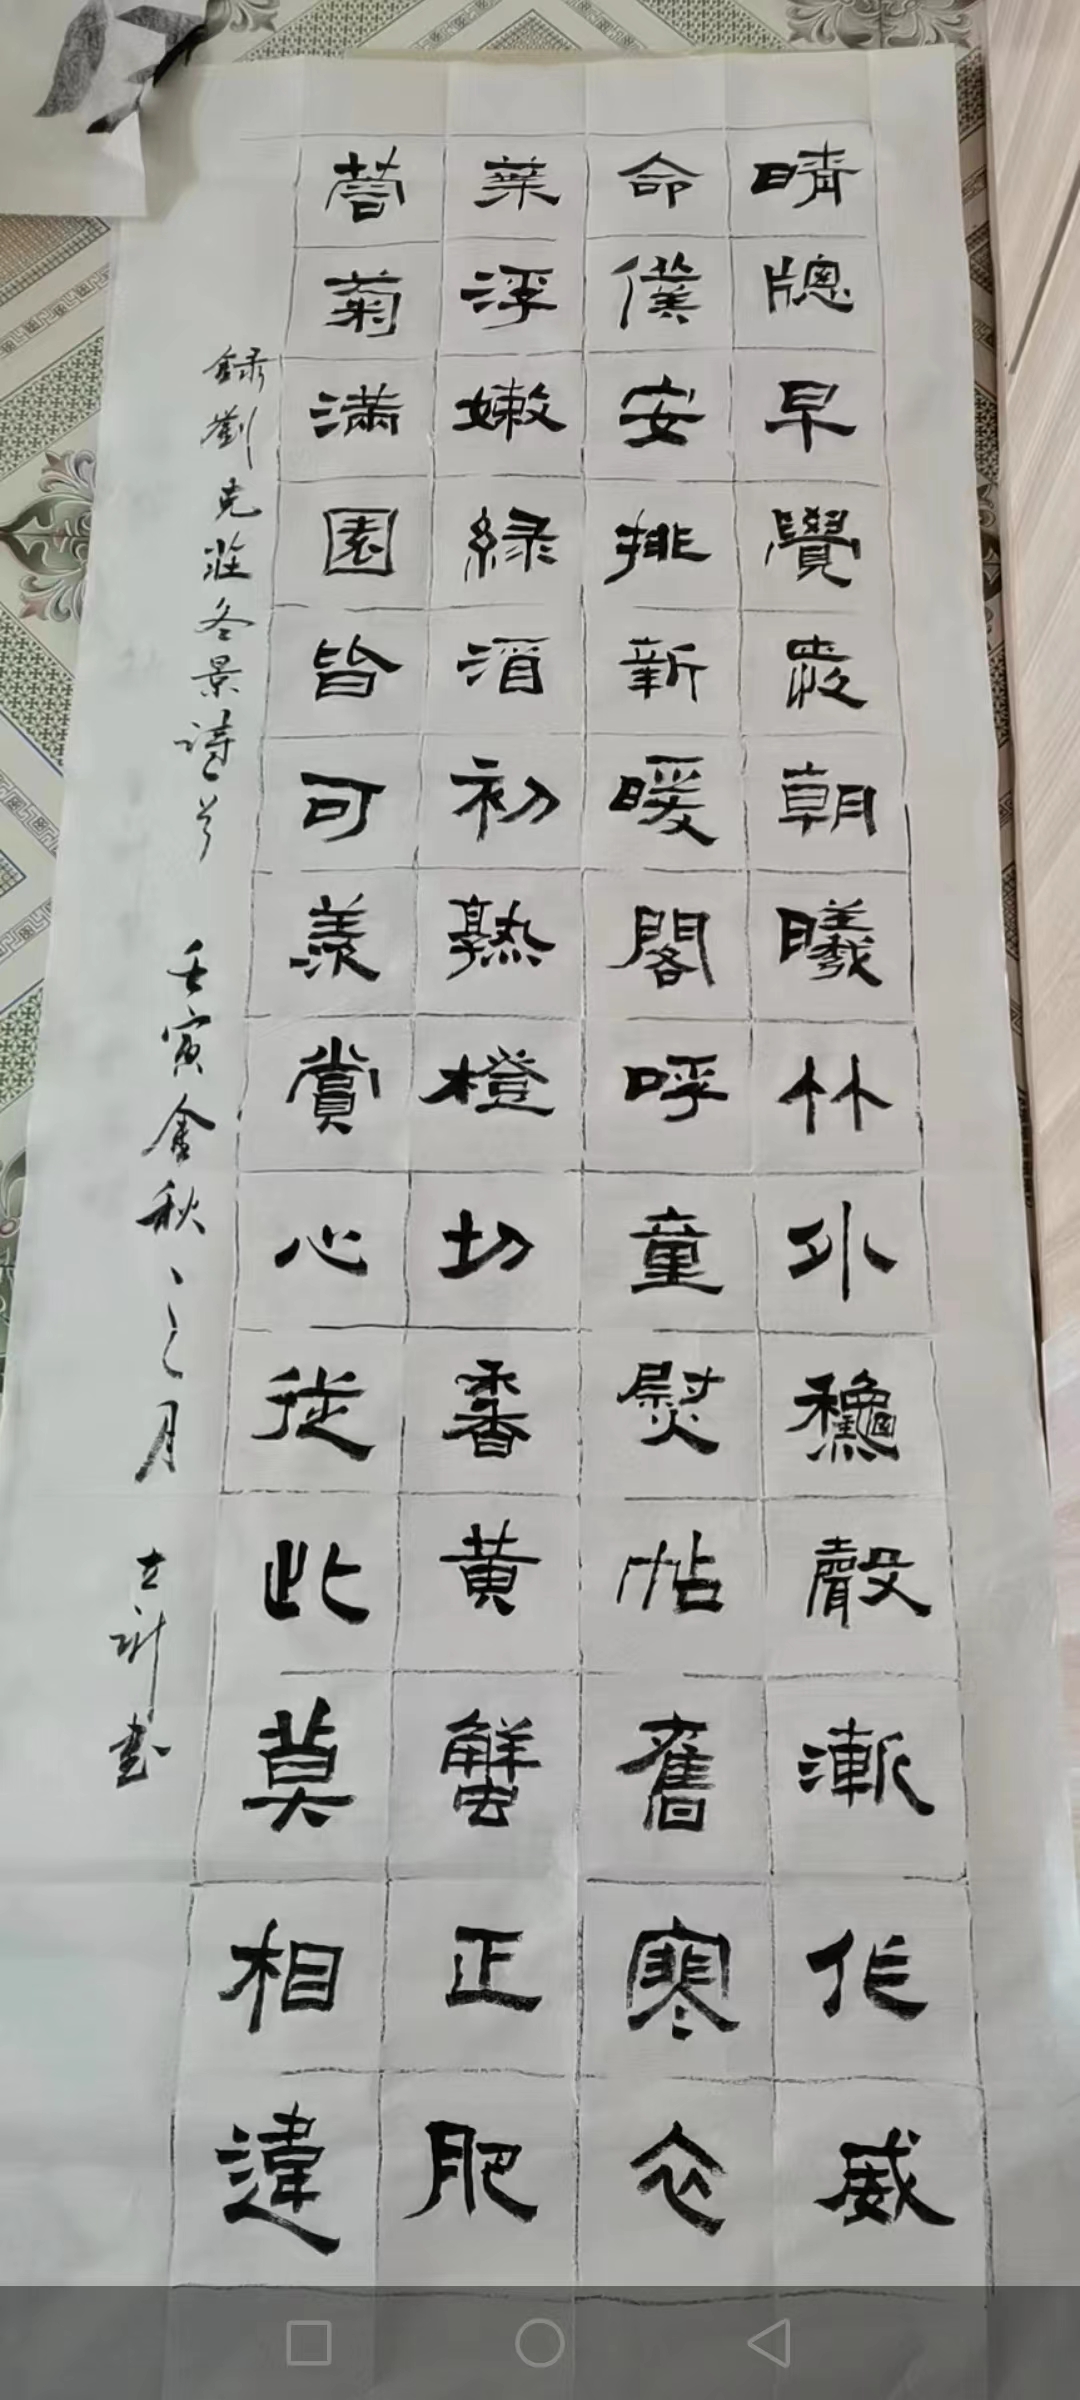 晴牕早覺愛朝曦竹外龝聲漸作威
命僕安排新暖閣呼童熨帖舊寒衣
葉浮嫩綠酒初熟橙切香黄蟹正肥
蓉菊滿園皆可羨賞心從此莫相違
録劉克莊冬景詩 壬寅金秋 月 書